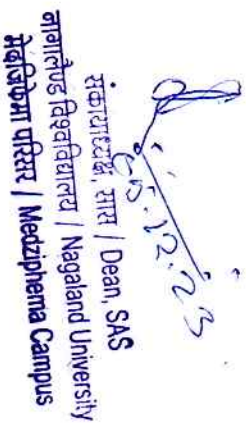 05.12.23
संकायाध्यक्ष, सास / Dean, SAS
नागालैण्ड विश्वविद्यालय / Nagaland University
मेडजिफेमा परिसर / Medziphema Campus